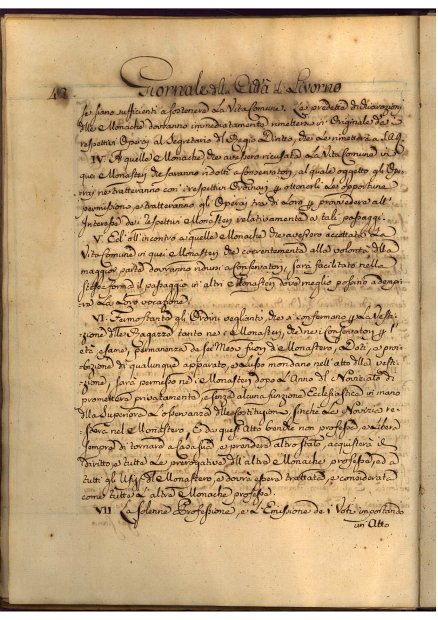 42. Giornale della Città di Livorno
se siano sufficienti a sostenere la Vita Comune. Le predette dichiarazioni
delle Monache dovranno immediatamente rimettersi in Originale da
respettivi Operaj al Segretario del Regio Diritto, che le rimetterà a S.A.R.
IV. A quelle Monache, che avessero ricusata la Vita Comune in
quei Monasteri che saranno ridotti Conservatorj, al quale oggetto gli Ope-
raj ne tratteranno con i respettivi Ordinarj per ottenerli le opportune
permissioni, e tratteranno gli Operaj tra di Loro per provvedere all'
Interesse de respettivi Monasteri relativamente a tali passaggi.
V. Ed all'incontro a quelle Monache che avessero accettata la
Vita Comune in quei Monasteri che coerentemente alla volontà della
maggior parte dovranno ridursi a Conservatorj, sarà facilitato nella
stessa forma il passaggio in altri Monasteri dove meglio possino adempi-
re la Loro vocazione.
VI. Fermo stante gli Ordini veglianti, che si confermano per la Vesti-
zione delle Ragazze tanto ne i Monasteri, che ne i Conservatorj per l'
età esame, permanenza da sei Mesi fuori de Monastero, Doti, e proi-
bizione di qualunque apparato, e Lusso mondano nell'atto della vesti-
zione, sarà permesso ne i Monasteri dopo l'Anno del Noviziato di
promettere privatamente, e senza alcuna funzione Ecclesiastica in mano
della Superiora l'osservanza delle Costituzioni, finchè la Novizia re-
sterà nel Monastero. E da quest'Atto benchè non professa, e libera
sempre di tornare a Casa sua e prendere altro stato, acquisterà il
diritto, e tutte le prerogative dell'altre Monache professe, ed a
tutti gli Ufizj del Monastero, e dovrà essere trattata, e considerata
come tutte l'altre Monache professe.
VII La solenne Professione, e l'Emissione de i Voti importando
un'Atto